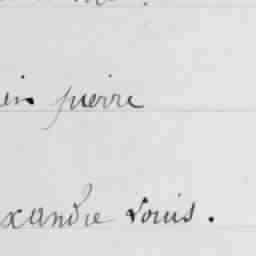 in pierre
xandre Louis.